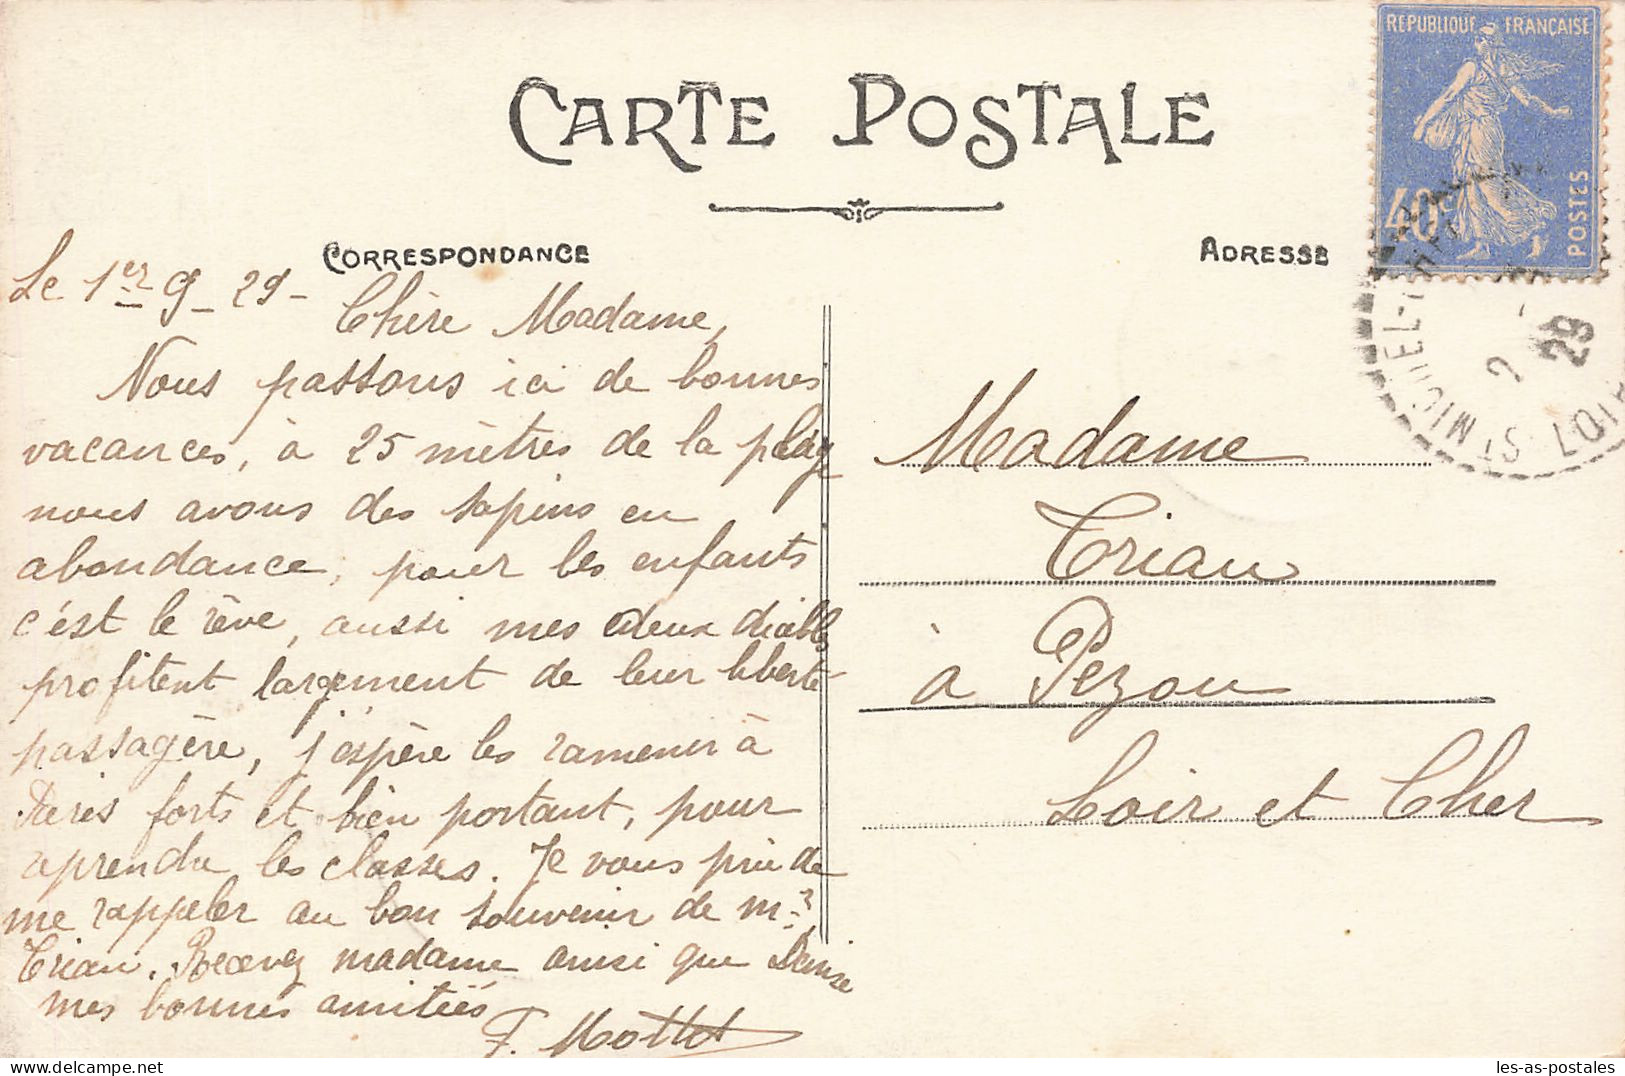 RÉPUBLIQUE FRANÇAISE
40c
POSTES
CARTE POSTALE
CORRESPONDANCE
ADRESSE
ST MICHEL
2
29
Le 1er 9 - 29 -
Chère Madame,
Nous passons ici de bonnes
vacances, à 25 mètres de la plage
nous avons des sapins en
abondance, pour les enfants
c'est le rêve, aussi mes deux diables
profitent largement de leur liberté
passagère, j'espère les ramener à
Paris forts et bien portant, pour
reprendre les classes. Je vous prie de
me rappeler au bon souvenir de Mr
Trian. Recevez madame ainsi que Denise
mes bonnes amitiés
F. Mottet
Madame
Trian
à Pezou
Loir et Cher
les-as-postales